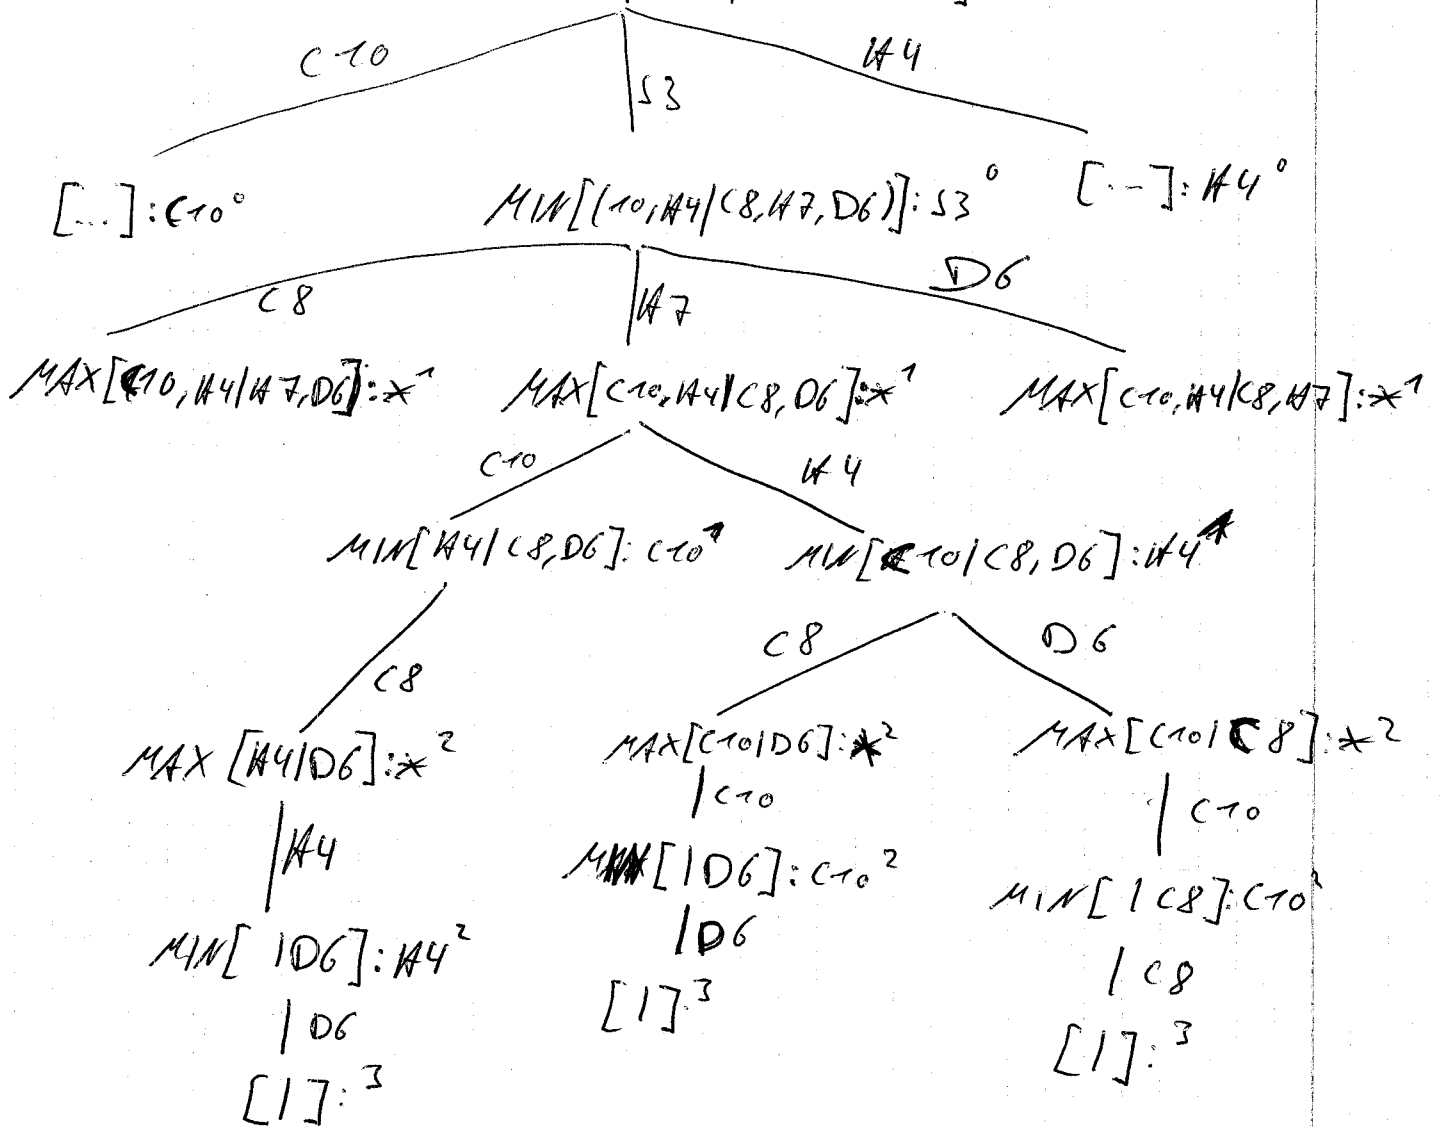 C10 H4
S3
[...]:C10⁰ MIN[(10,H4|C8,H7,D6)]:S3⁰ [...]:H4⁰
C8 H7 D6
MAX[C10,H4|H7,D6]:*¹ MAX[C10,H4|C8,D6]:*¹ MAX[C10,H4|C8,H7]:*¹
C10 H4
MIN[H4|C8,D6]:C10¹ MIN[C10|C8,D6]:H4¹
C8 C8 D6
MAX[H4|D6]:*² MAX[C10|D6]:*² MAX[C10|C8]:*²
H4 C10 C10
MIN[|D6]:H4² MIN[|D6]:C10² MIN[|C8]:C10²
D6 D6 C8
[|]:³ [|]:³ [|]:³